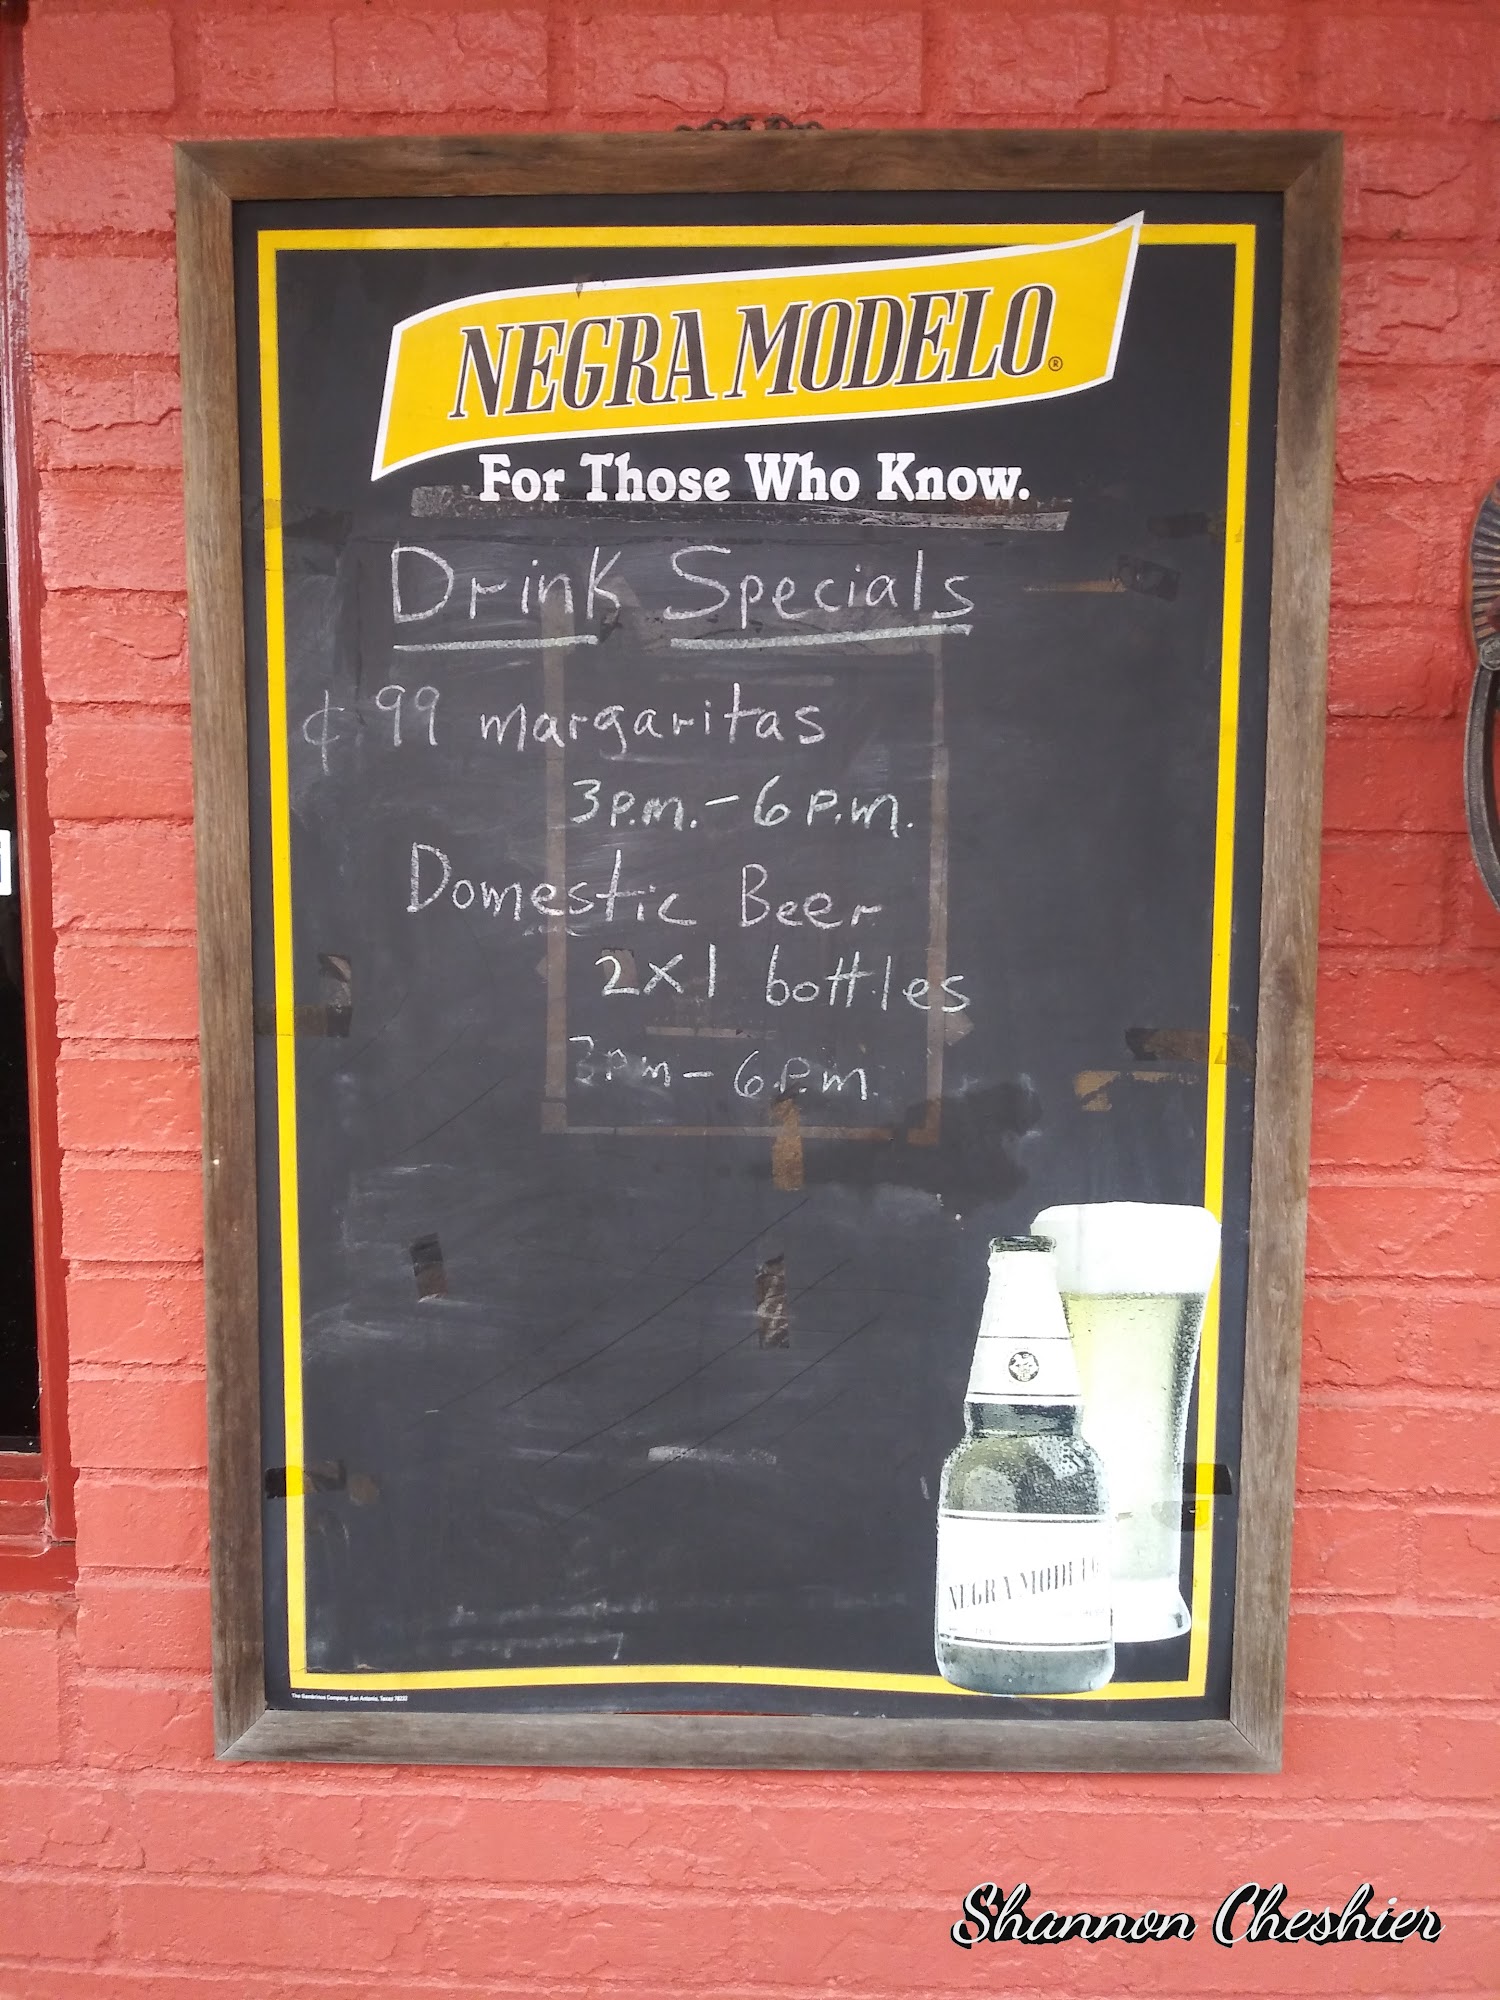 NEGRA MODELO®
For Those Who Know.
Drink Specials
¢ 99 margaritas
3p.m. - 6 p.m.
Domestic Beer
2x1 bottles
3pm - 6p.m.
NEGRA MODELO
The Gambrinus Company, San Antonio, Texas 78232
Shannon Cheshier